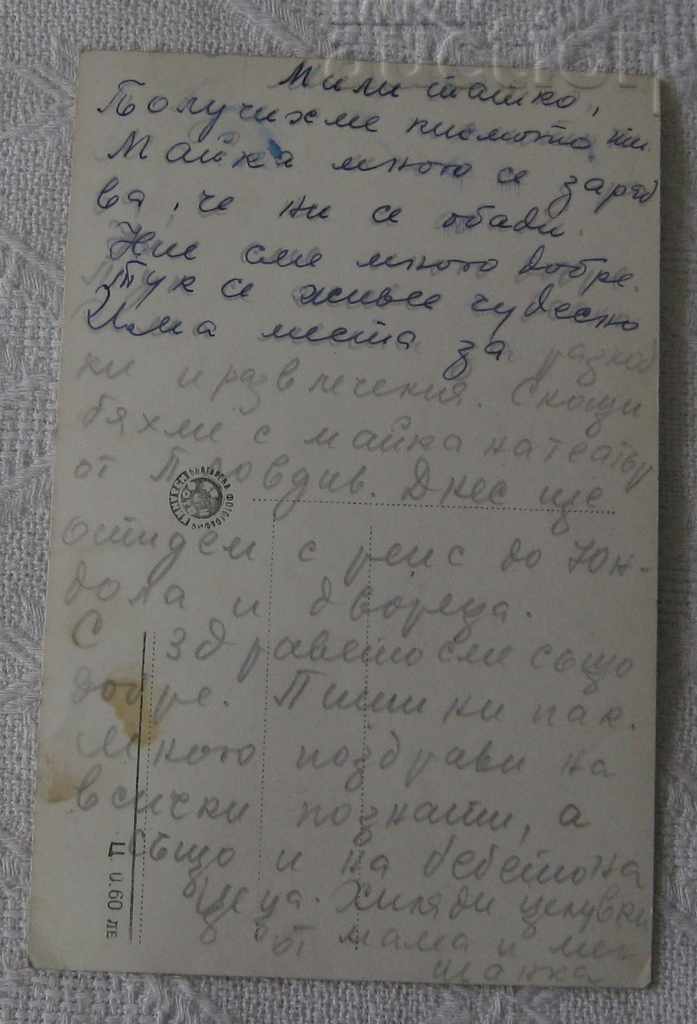 Мили татко,
Получихме писмото ти.
Майка много се зарад
ва, че ни се обади.
Ние сме много добре.
Тук се живее чудесно
Има места за разход
ки и развлечения. Снощи
бяхме с майка на театър
от Пловдив. Днес ще
отидем с рейс до Юн-
дола и двореца.
С здравето сме също
добре. Пиши ни пак.
Много поздрави на
всички познати, а
също и на бебето на
Цеца. Хиляди целувки
от мама и мен
Ц. 0.60 лв